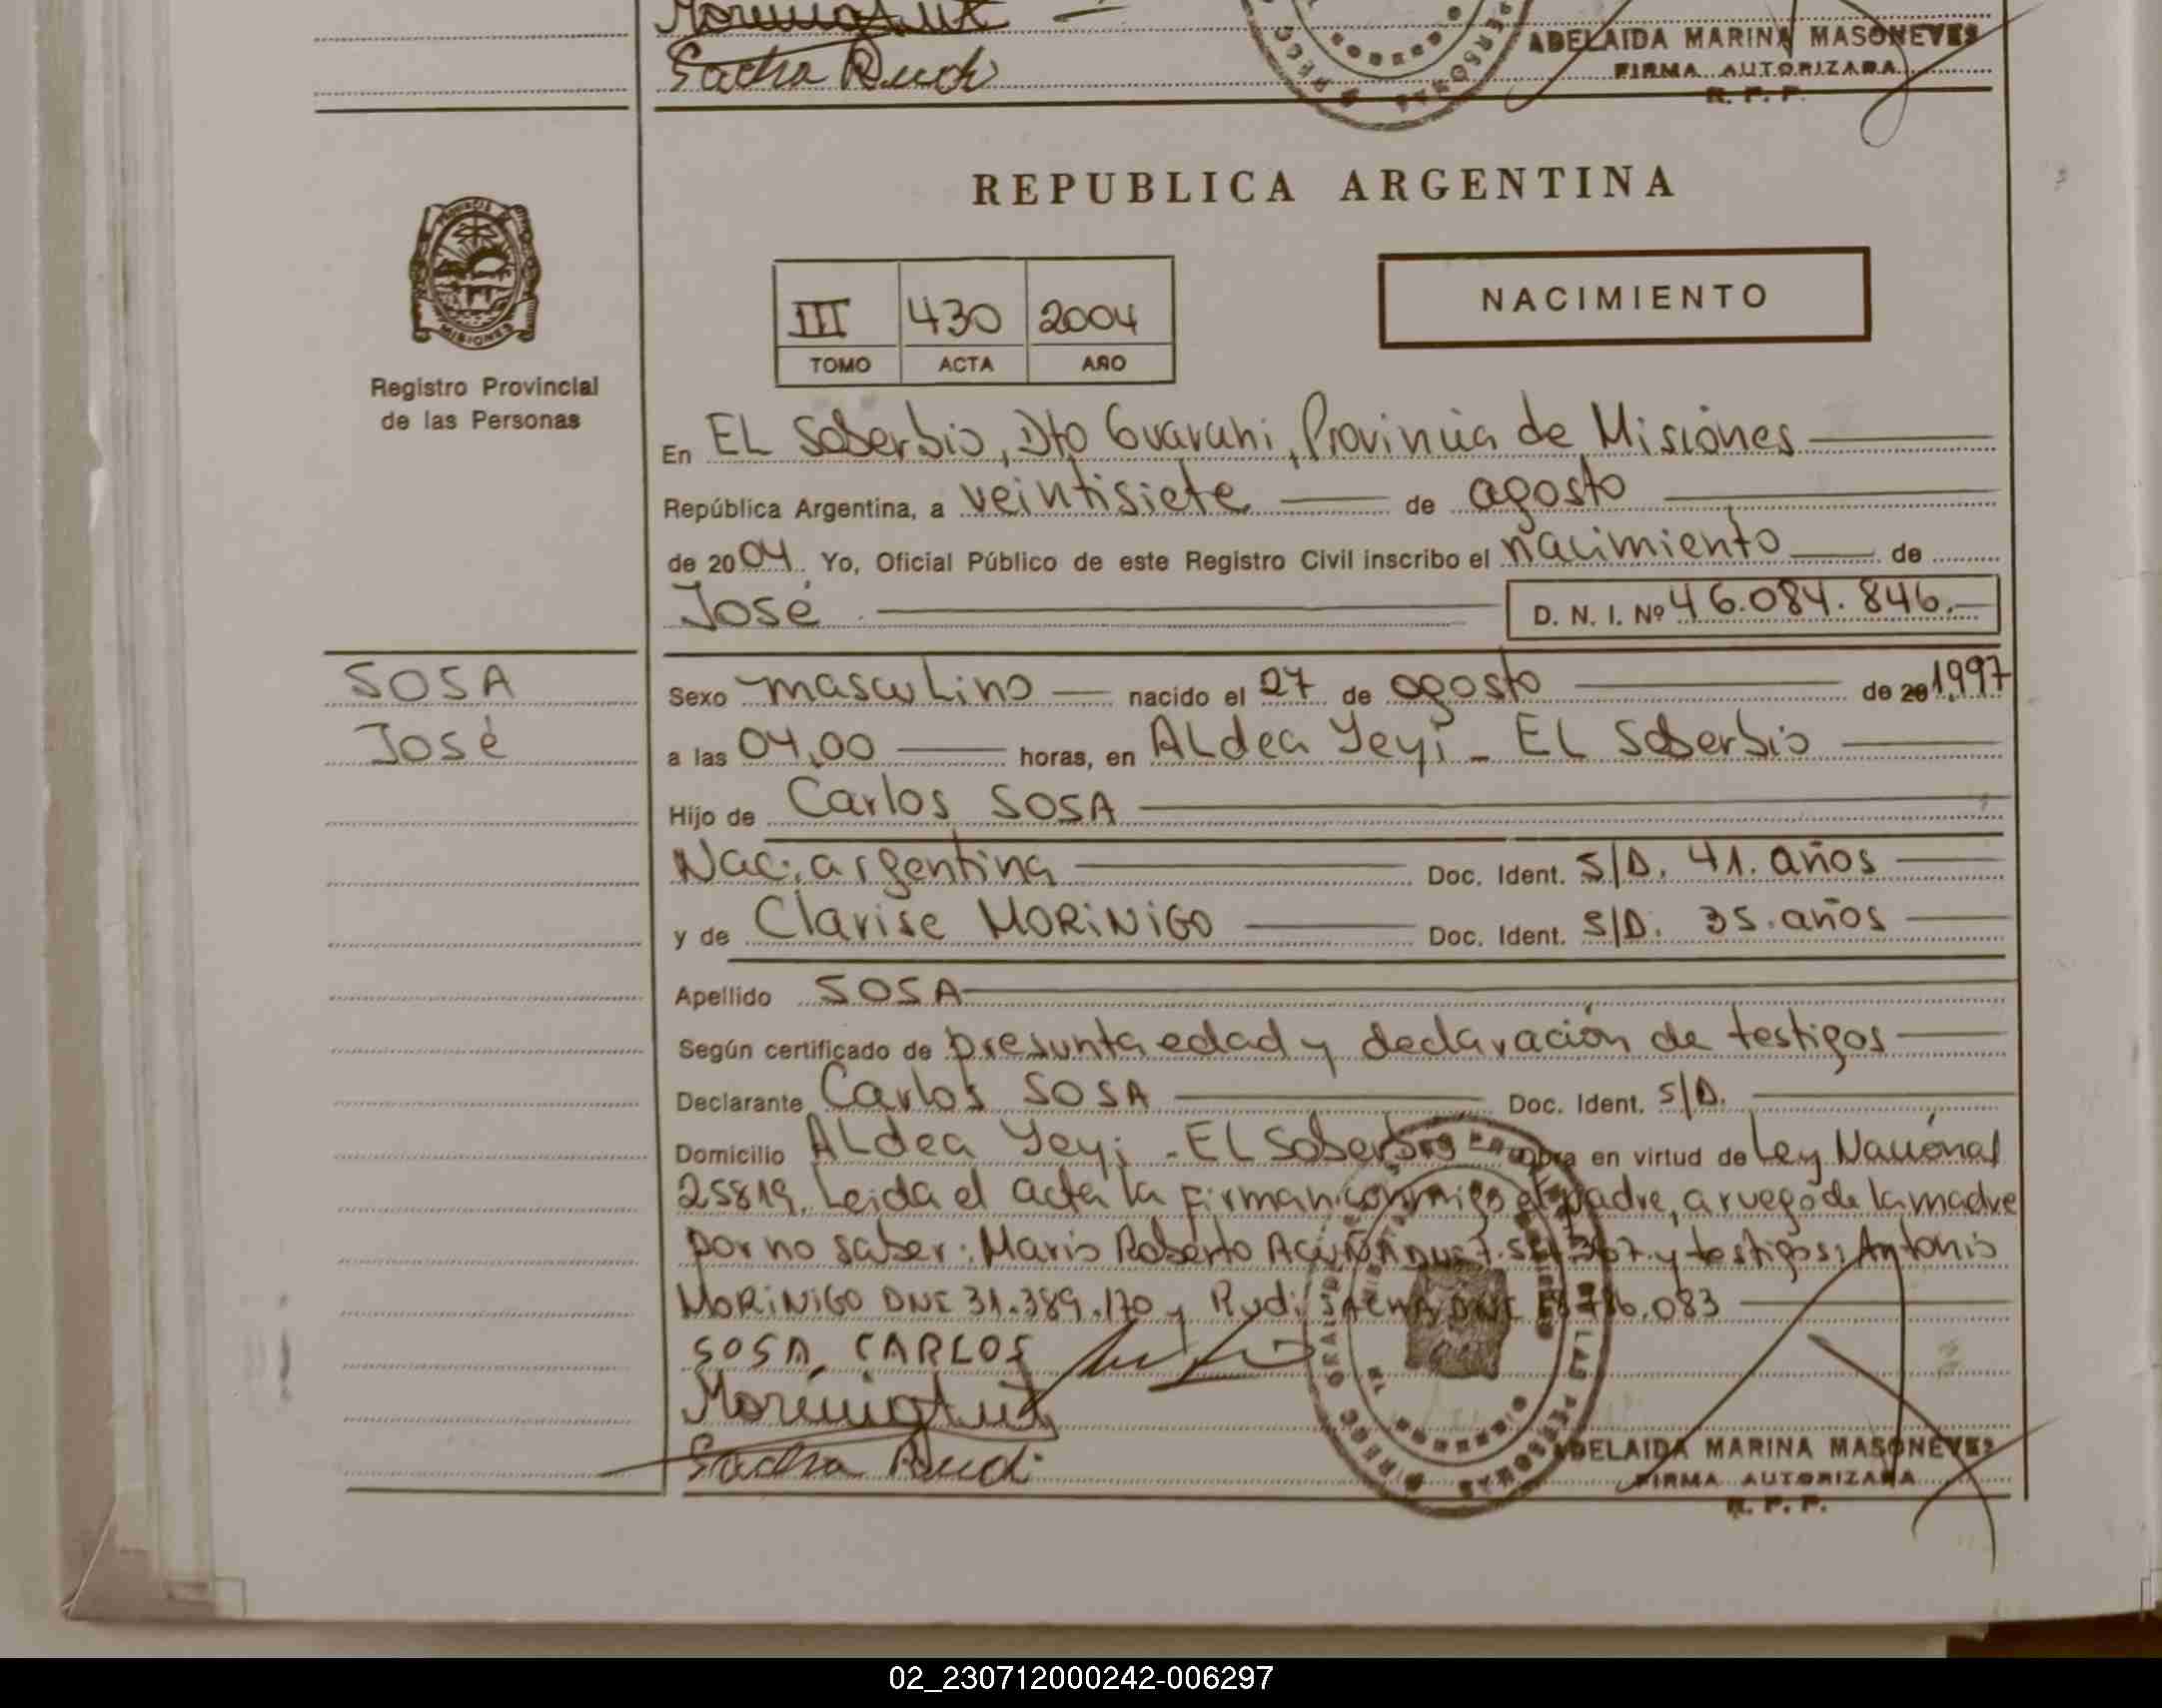 Sacha Rudi
ADELAIDA MARINA MASONEVES
FIRMA AUTORIZADA
R. P. P.
REPUBLICA ARGENTINA
PROVINCIA DE
MISIONES
Registro Provincial
de las Personas
III 430 2004
TOMO ACTA AÑO
NACIMIENTO
En EL Soberbio, Dto Guarani, Provincia de Misiones
República Argentina, a veintisiete de agosto
de 2004 Yo, Oficial Público de este Registro Civil inscribo el nacimiento de
José D. N. I. Nº 46.084.846.
SOSA
José
Sexo masculino nacido el 27 de agosto de 20 1997
a las 04,00 horas, en ALdea Yeyi - EL Soberbio
Hijo de Carlos SOSA
Nac. argentina Doc. Ident. S/D. 41. años
y de Clarise MORiNiGO Doc. Ident. S/D. 35. años
Apellido SOSA
Según certificado de presunta edad y declaración de testigos
Declarante Carlos SOSA Doc. Ident. S/D.
Domicilio ALdea Yeyi - EL Soberbio Obra en virtud de Ley Nacional
25819. Leida el acta la firman conmigo el padre, a ruego de la madre
por no saber: Mario Roberto ACUÑA y testigos: Antonio
MORiNiGO DNI 31.389.170 y Rudi SACHA DNI
SOSA CARLOS
Sacha Rudi
ADELAIDA MARINA MASONEVES
FIRMA AUTORIZADA
R. P. P.
02_230712000242-006297